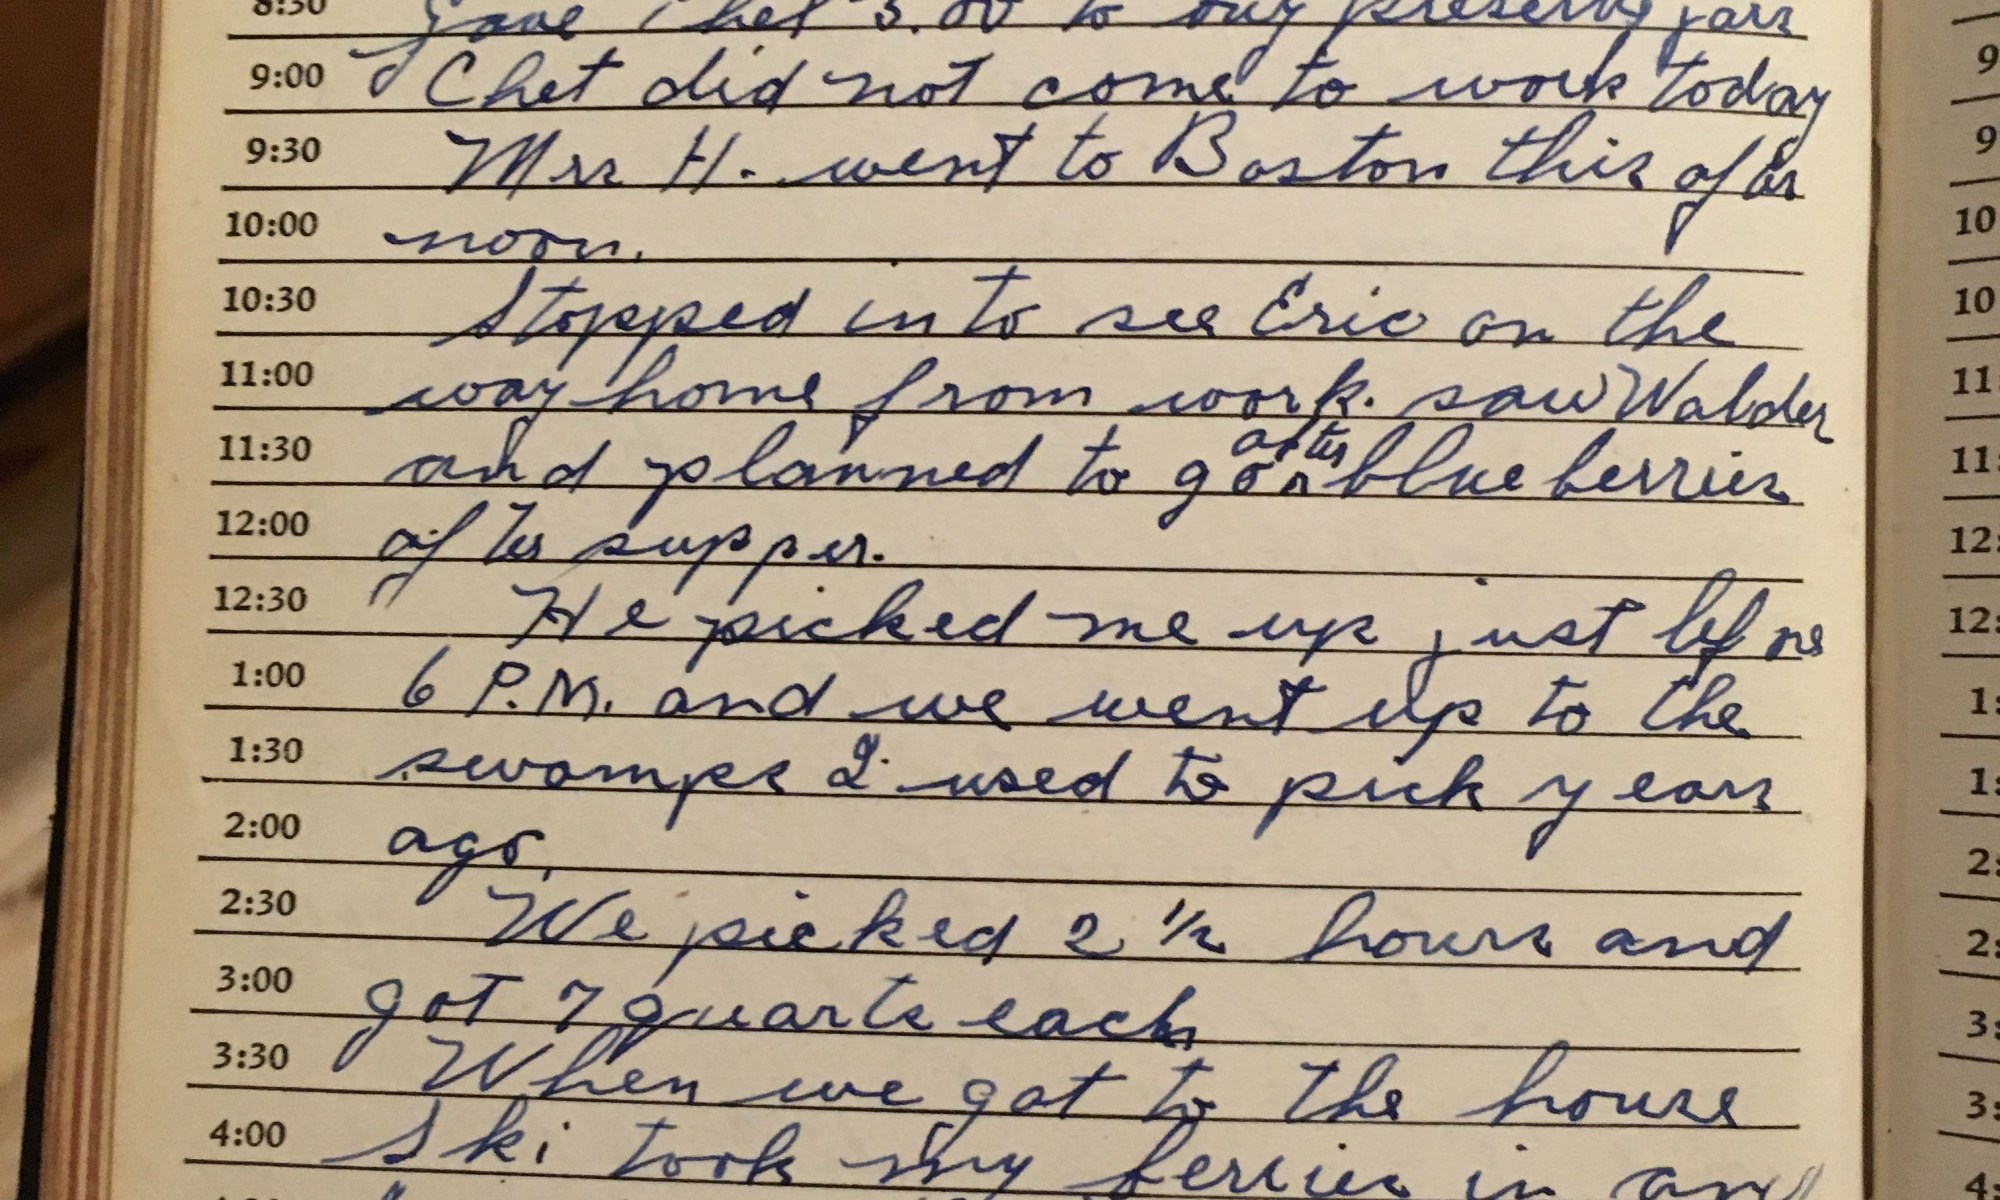 8:30 Gave Chet 5.00 to buy preserve jars
9:00 Chet did not come to work today
9:30 Mrs H. went to Boston this after
10:00 noon.
10:30 Stopped in to see Eric on the
11:00 way home from work. saw Walder
after
11:30 and planned to go ^ blue berries
12:00 after supper.
12:30 He picked me up just before
1:00 6 P.M. and we went up to the
1:30 swamps I used to pick years
2:00 ago.
2:30 We picked 2 1/2 hours and
3:00 got 7 quarts each
3:30 When we got to the house
4:00 Ski took my berries in and
9
9
10
10
11
11
12:
12:
1:
1:
2:
2:
3:
3:
4: